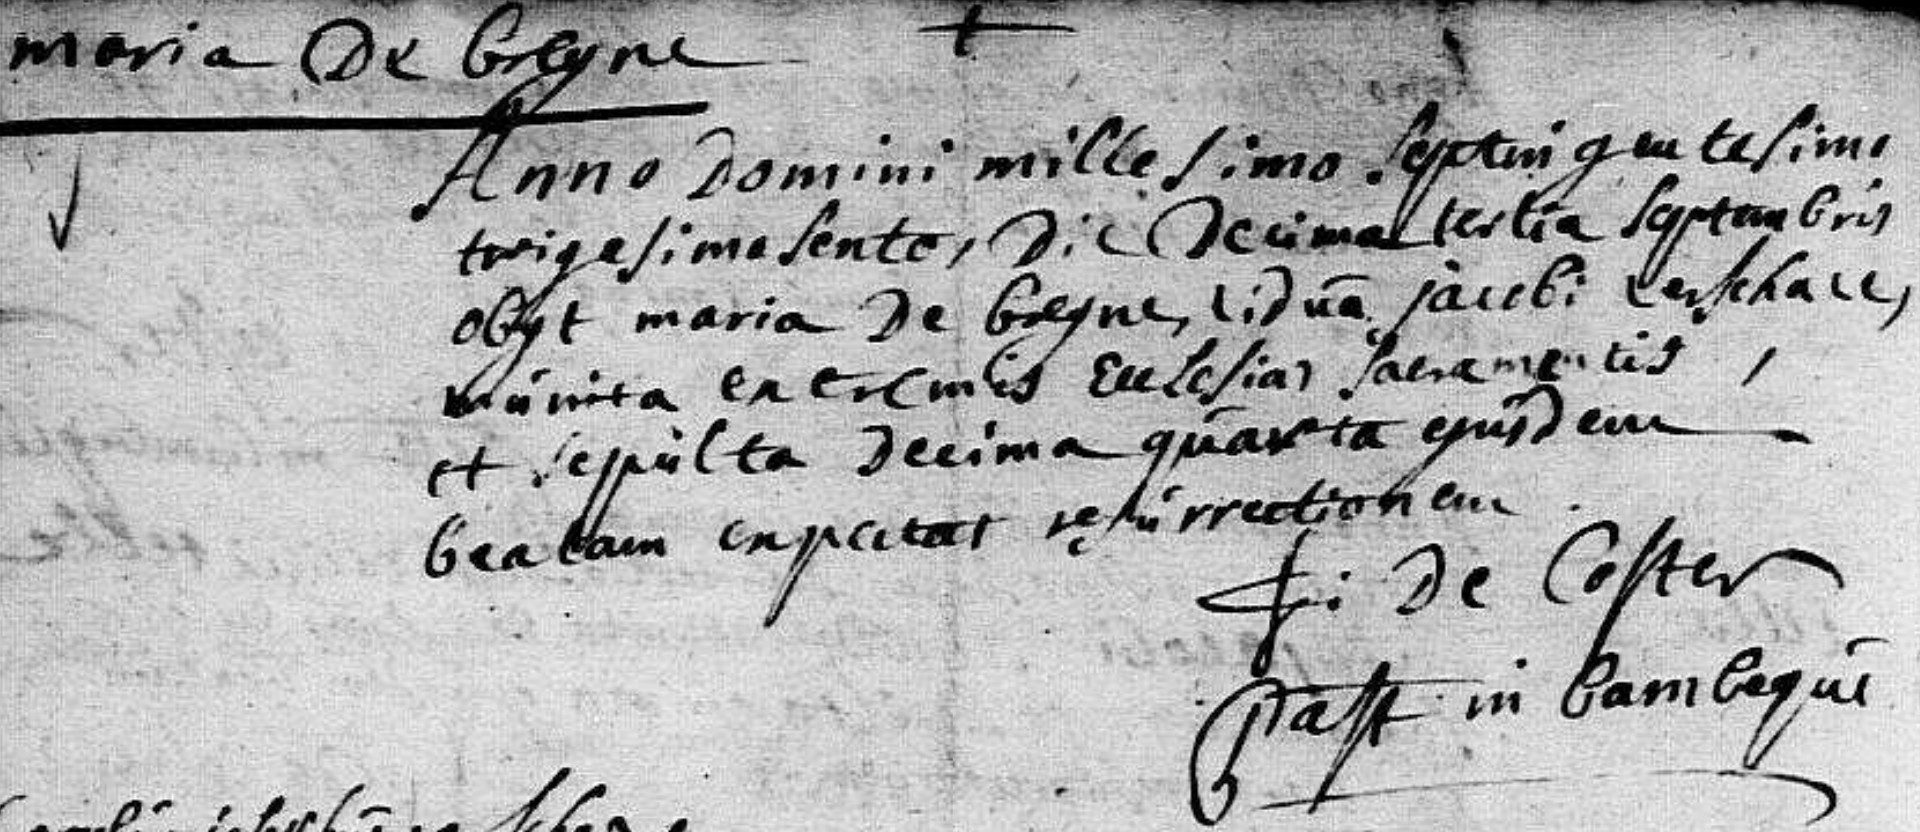 maria De breyne
Anno Domini millesimo septuigentesimo
trigesimosexto, Die Decima tertia septembris
obyt maria De breyne, vidua jacobi verschave,
munita extremis Ecclesiae sacramentis,
et sepulta Decima quarta ejusdem
beatam expectat resurrectionem.
De Coster
past in bambeque